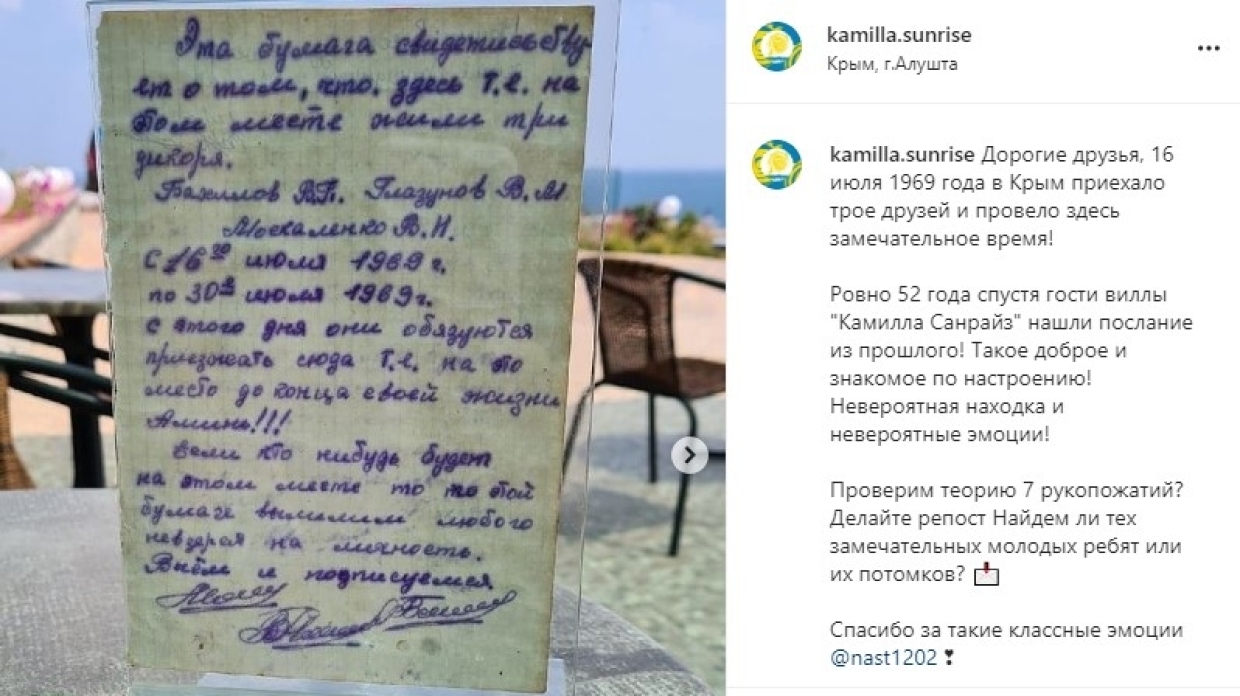 Эта бумага свидетельству
ет о том, что. здесь т.е. на
этом месте жили три
дикоря.
Бахилов В.П. Глазунов В.М.
Москаленко В.Н.
С 16го июля 1969 г.
по 30е июля 1969 г.
с этого дня они обязуются
приезжать сюда т.е. на это
место до конца своей жизни
Аминь!!!
Если кто нибудь будет
на этом месте то по этой
бумаге
на личность.
и подписуемся
kamilla.sunrise
Крым, г.Алушта
kamilla.sunrise Дорогие друзья, 16
июля 1969 года в Крым приехало
трое друзей и провело здесь
замечательное время!
Ровно 52 года спустя гости виллы
"Камилла Санрайз" нашли послание
из прошлого! Такое доброе и
знакомое по настроению!
Невероятная находка и
невероятные эмоции!
Проверим теорию 7 рукопожатий?
Делайте репост Найдем ли тех
замечательных молодых ребят или
их потомков?
Спасибо за такие классные эмоции
@nast1202